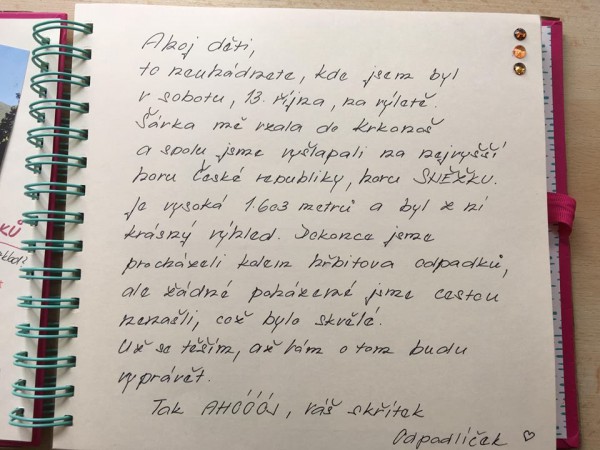 Ahoj děti,
to neuhádnete, kde jsem byl
v sobotu, 13. října, na výletě.
Šárka mě vzala do Krkonoš
a spolu jsme vyšlapali na nejvyšší
horu České republiky, horu SNĚŽKU.
Je vysoká 1.603 metrů a byl z ní
krásný výhled. Dokonce jsme
procházeli kolem hřbitova odpadků,
ale žádné poházené jsme cestou
nenašli, což bylo skvělé.
Už se těším, až vám o tom budu
vyprávět.
Tak AHÓÓÓJ, váš skřítek
Odpadlíček ♡
KŮ